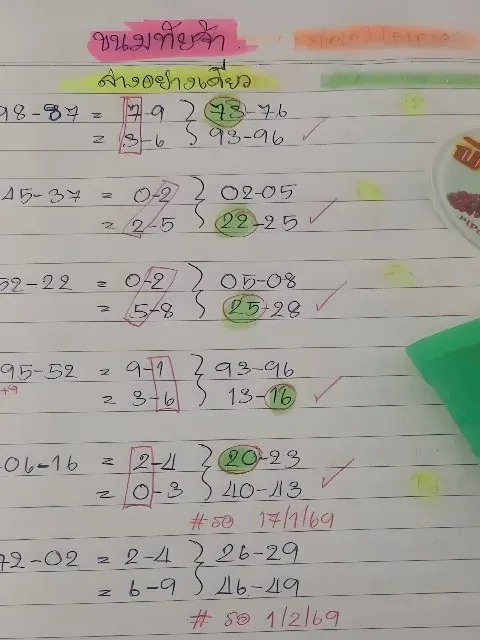 ขนมทัยจ้า
ล่างอย่างเดียว
98-87 = 7-9 } 73-76
= 3-6 } 93-96 ✓
45-37 = 0-2 } 02-05
= 2-5 } 22-25 ✓
52-22 = 0-2 } 05-08
= 5-8 } 25-28 ✓
95-52 = 9-1 } 93-96
+9 = 3-6 } 13-16 ✓
06-16 = 2-4 } 20-23
= 0-3 } 40-43 ✓
# รอ 17/1/69
72-02 = 2-4 } 26-29
= 6-9 } 46-49
# รอ 1/2/69